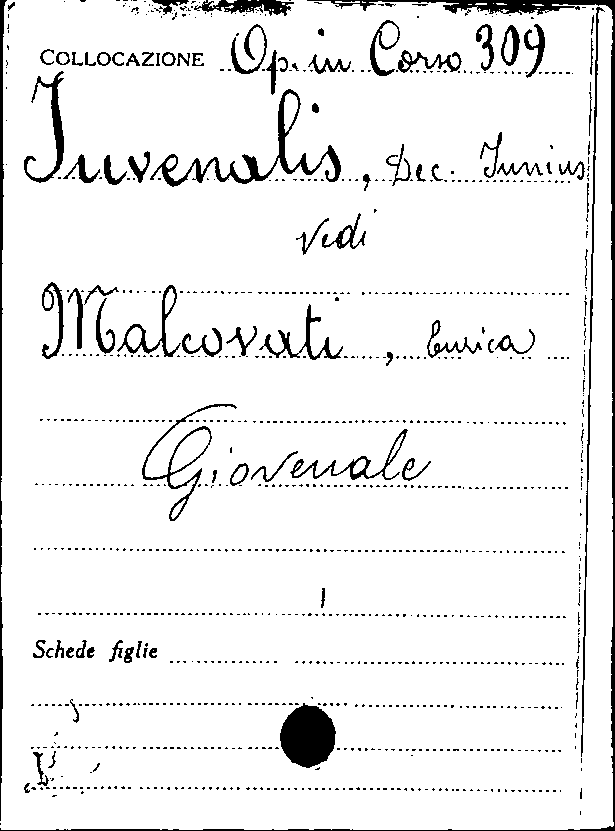 COLLOCAZIONE Op. in Corso 309
Juvenalis, Dec. Junius
vedi
Malcovati, Enrica
Giovenale
Schede figlie